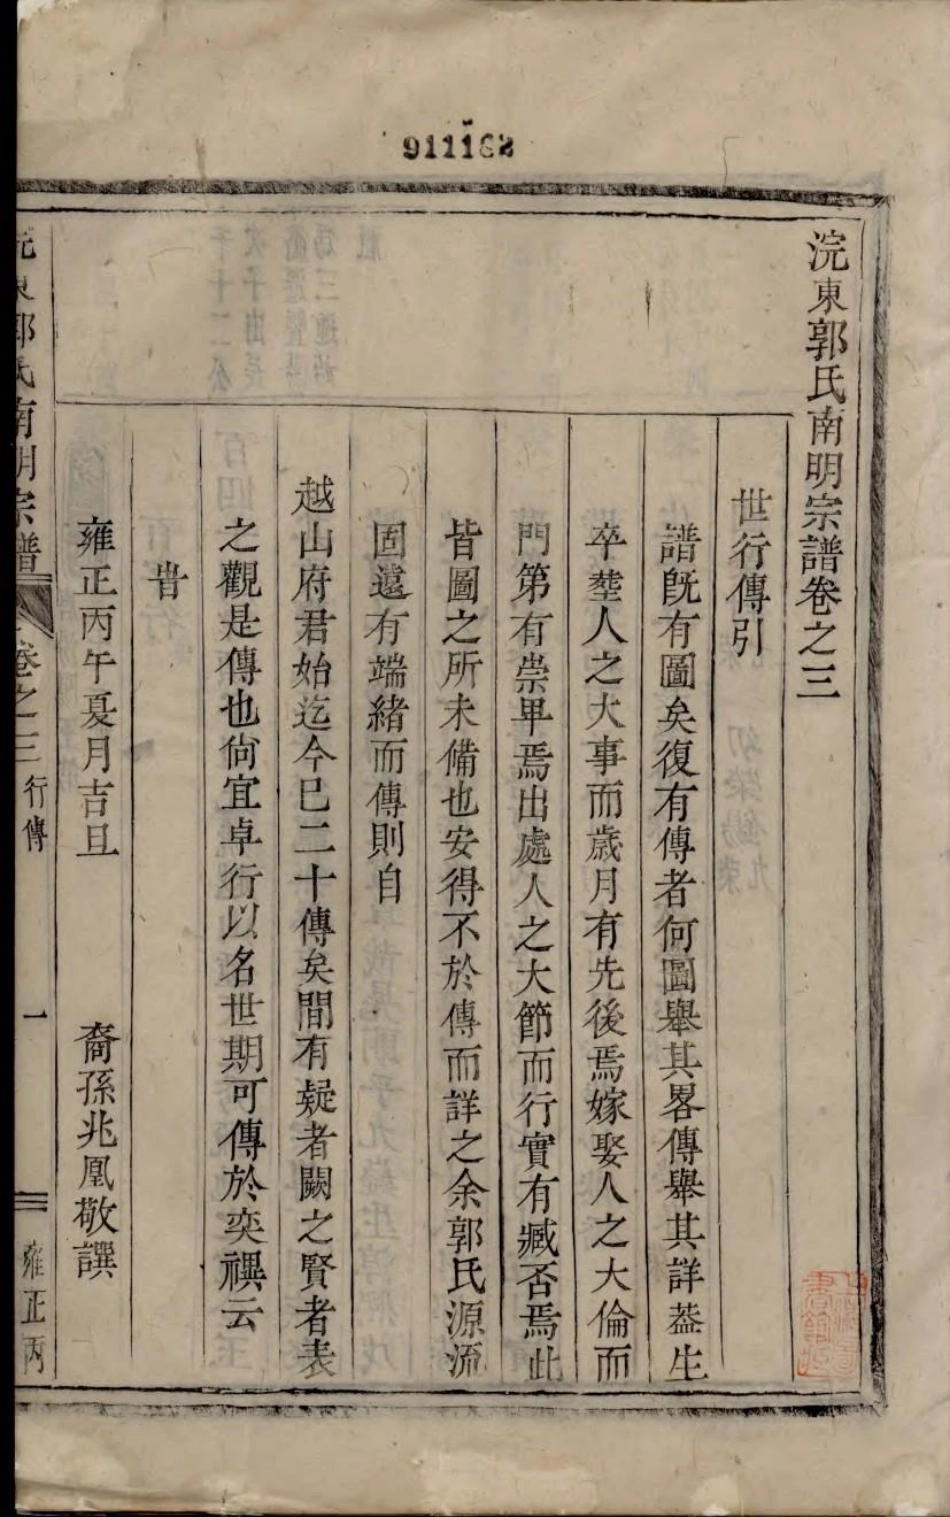 911162
浣東郭氏南明宗譜卷之三
世行傳引
譜旣有圖矣復有傳者何圖舉其畧傳舉其詳葢生
卒塟人之大事而歲月有先後焉嫁娶人之大倫而
門第有崇畢焉出處人之大節而行實有臧否焉此
皆圖之所未備也安得不於傳而詳之余郭氏源流
固遠有端緒而傳則自
越山府君始迄今巳二十傳矣間有疑者闕之賢者表
之觀是傳也尙宜卓行以名世期可傳於奕禩云
旹
雍正丙午夏月吉旦 裔孫兆凰敬譔
浣東郭氏南明宗譜 卷之三 行傳 一 雍正丙